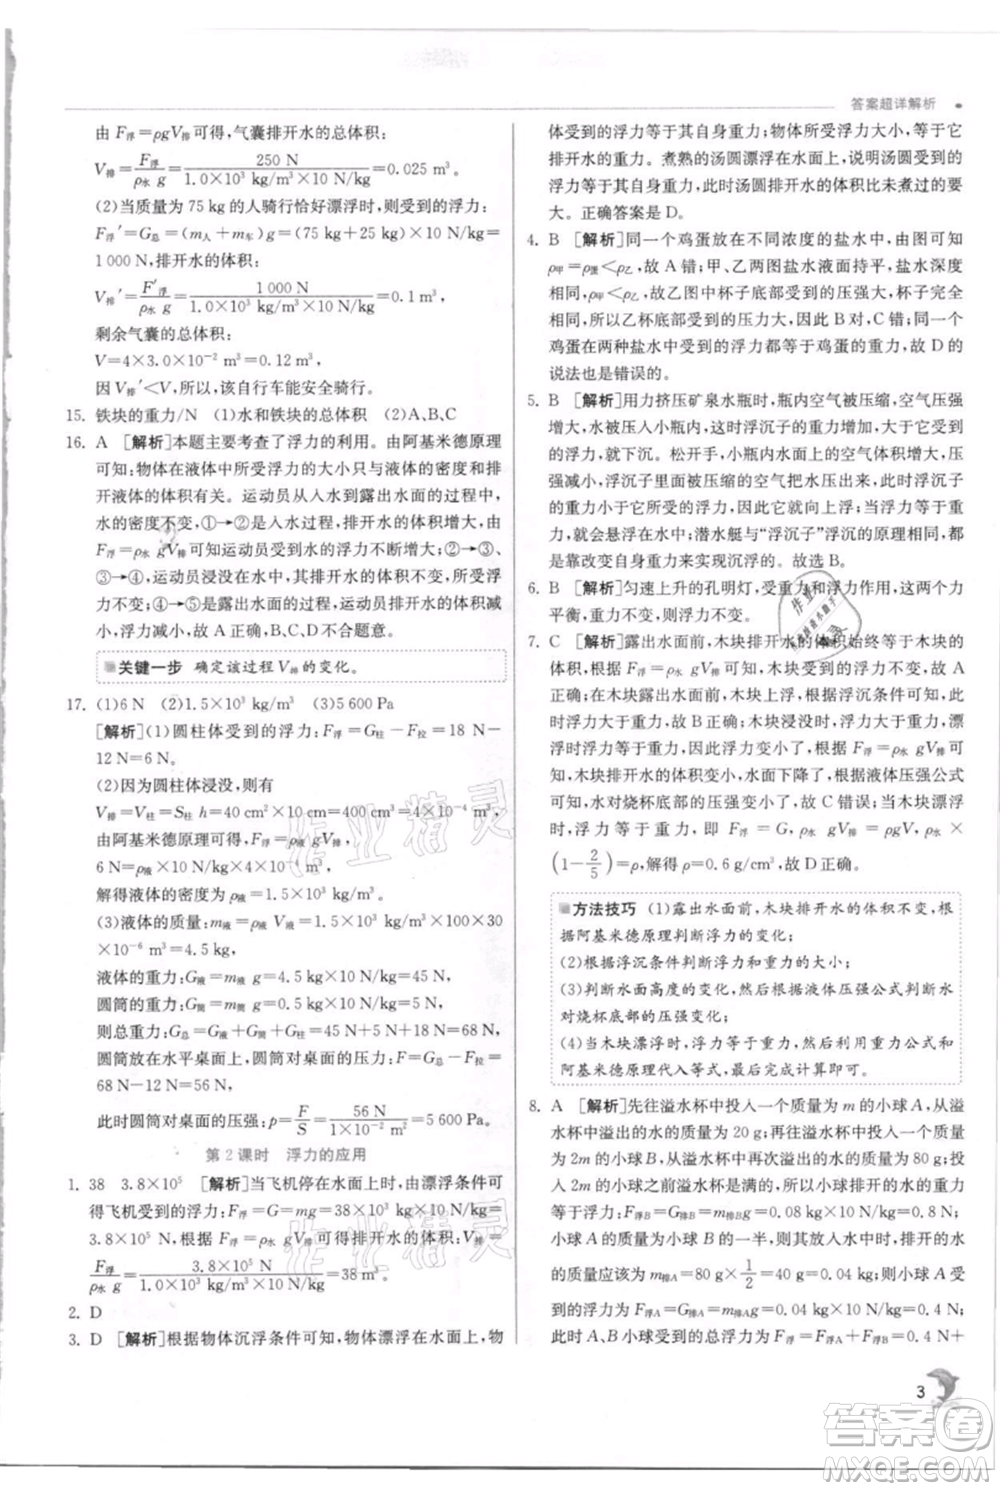 答案超详解析
由 F浮=ρgV排可得,气囊排开水的总体积:
V排=F浮/ρ水 g=250 N/1.0×10³ kg/m³×10 N/kg=0.025 m³
(2)当质量为 75 kg 的人骑行恰好漂浮时,则受到的浮力:
F浮′=G总=(m人+m车)g=(75 kg+25 kg)×10 N/kg=
1 000 N,排开水的体积:
V排′=F′浮/ρ水 g=1 000 N/1.0×10³ kg/m³×10 N/kg=0.1 m³,
剩余气囊的总体积:
V=4×3.0×10⁻² m³=0.12 m³,
因 V排′<V,所以,该自行车能安全骑行。
15. 铁块的重力/N (1)水和铁块的总体积 (2)A、B、C
16. A [解析]本题主要考查了浮力的利用。由阿基米德原理
可知:物体在液体中所受浮力的大小只与液体的密度和排
开液体的体积有关。运动员从入水到露出水面的过程中,
水的密度不变,①→②是入水过程,排开水的体积增大,由
F浮=ρ水 gV排可知运动员受到水的浮力增大;②→③→
④过程中,运动员浸没在水中,其排开水的体积不变,浮力
不变;④→⑤是露出水面的过程中,排开水的体积减小,浮
力减小。故 A 符合题意,B、C、D 不合题意。
关键一步 确定该过程 V排的变化。
17. (1)6 N (2)1.5×10³ kg/m³ (3)5 600 Pa
[解析](1)圆柱体受到的浮力:F浮=G柱-F拉=18 N-
12 N=6 N。
(2)因为圆柱体浸没,则有
V排=V柱=S柱 h=40 cm²×10 cm=400 cm³=4×10⁻⁴ m³,
由阿基米德原理可得:F浮=ρ液 gV排,
6 N=ρ液×10 N/kg×4×10⁻⁴ m³,
解得液体的密度:ρ液=1.5×10³ kg/m³。
(3)液体的质量:m液=ρ液 V液=1.5×10³ kg/m³×100×30
×10⁻⁶ m³=4.5 kg,
液体的重力:G液=m液 g=4.5 kg×10 N/kg=45 N,
圆筒的重力:G筒=m筒 g=0.5 kg×10 N/kg=5 N,
则总重力:G总=G液+G筒+G柱=45 N+5 N+18 N=68 N,
圆筒放在水平桌面上,圆筒对桌面的压力:F=G总-F拉=
68 N-12 N=56 N,
此时圆筒对桌面的压强:p=F/S=56 N/100×10⁻⁴ m²=5 600 Pa。
第 2 课时 浮力的应用
1. 38 3.8×10⁵ [解析]当飞机停在水面上时,由漂浮条件可
得飞机受到的浮力:F浮=G=mg=38×10³ kg×10 N/kg=
3.8×10⁵ N,根据 F浮=ρ水 gV排可得,排开水的体积:V排=
F浮/ρ水 g=3.8×10⁵ N/1.0×10³ kg/m³×10 N/kg=38 m³。
2. D
3. D [解析]根据物体沉浮条件可知,物体漂浮在水面上,物
体受到的浮力等于其自身重力;物体所受浮力大小,等于它
排开水的重力。煮熟的汤圆漂浮在水面上,说明汤圆受到的
浮力等于其自身重力,此时汤圆排开水的体积比未煮过的
大。正确答案是 D。
4. B [解析]同一个鸡蛋在不同浓度的盐水中,由图可知
ρ甲=ρ蛋<ρ乙,故 A 错;甲、乙两图盐水液面持平,即深度
相同,ρ甲<ρ乙,故乙图中杯子底部受到的压强大,杯子完全
相同,所以乙杯底部受到的压力大,因此 B 对,C 错;同一个
鸡蛋在两种盐水中所受到的浮力都等于鸡蛋重力,故 D 的
说法也是错误的。
5. B [解析]用力挤压矿泉水瓶时,瓶内空气被压缩,空气压强
增大,水被压入小瓶内,当浮沉子的重力大于它受到的浮力
时,就下沉。松开手,小瓶内水面上的空气体积增大,空气压
强减小,小瓶里被压缩的空气把水压出来,此时浮沉子的重
力减小,由于浮沉子的体积不变,即它受到的浮力大小不变,
所以就会悬浮在水中;潜水艇与“浮沉子”浮沉的原理相同,都
是靠改变自身重力来实现沉浮的。故选 B。
6. B [解析]匀速上升的孔明灯,受重力和浮力作用,这两个力
平衡,重力不变,则浮力不变。
7. C [解析]露出水面前,木块排开水的体积始终等于木块的
体积,根据 F浮=ρ水 gV排可知,木块受到浮力不变,故 A
正确;在木块露出水面前,木块上浮,根据浮沉条件可知,
浮力大于重力;木块静止时,木块处于漂浮状态,此时
浮力等于重力,故 B 正确;木块上浮时,浮力大于重力,漂
浮时浮力等于重力,说明浮力变小了,根据 F浮=ρ水 gV排
可知,木块排开水的体积变小了,水面下降了,所以木块漂
浮时,水的深度减小,根据液体压强公式可知,
水对烧杯底部的压强变小了,故 C 错误;当木块漂浮时,
浮力等于重力,即 F浮=G=ρ水 gV排=ρgV,ρ水×
(1-2/5)=ρ,解得 ρ=0.6 g/cm³,故 D 正确。
方法技巧 (1)露出水面前,木块排开水的体积不变,根
据阿基米德原理判断浮力的变化;
(2)根据浮沉条件判断浮力和重力的大小;
(3)判断水面高度的变化,然后根据液体压强公式判断水
对烧杯底部的压强变化;
(4)当木块漂浮时,浮力等于重力,根据重力公式和
阿基米德原理代入等式,最后完成计算。
8. A [解析]先往溢水杯中投入一个质量为 m 的小球 A,从溢
水杯中溢出的水的质量为 20 g;再往溢水杯中投入一个质量为
2m 的小球 B,又从溢水杯中溢出 60 g 的水,此时质量为
2m 的小球 B 排开的水的质量应该为 m排B=80 g=0.08 kg,
所受浮力:F浮B=G排B=m排B g=0.08 kg×10 N/kg=0.8 N,
由于小球 A 的质量为小球 B 的一半,所以小球 A 排开的水
的质量应该为 m排A=80 g×1/2=40 g=0.04 kg,小球 A 受
到的浮力:F浮A=G排A=m排A g=0.04 kg×10 N/kg=0.4 N,
此时 A、B 小球受到的总浮力 F浮=F浮A+F浮B=0.4 N+
3
作业精灵
作业精灵
答案圈
MXQE.COM